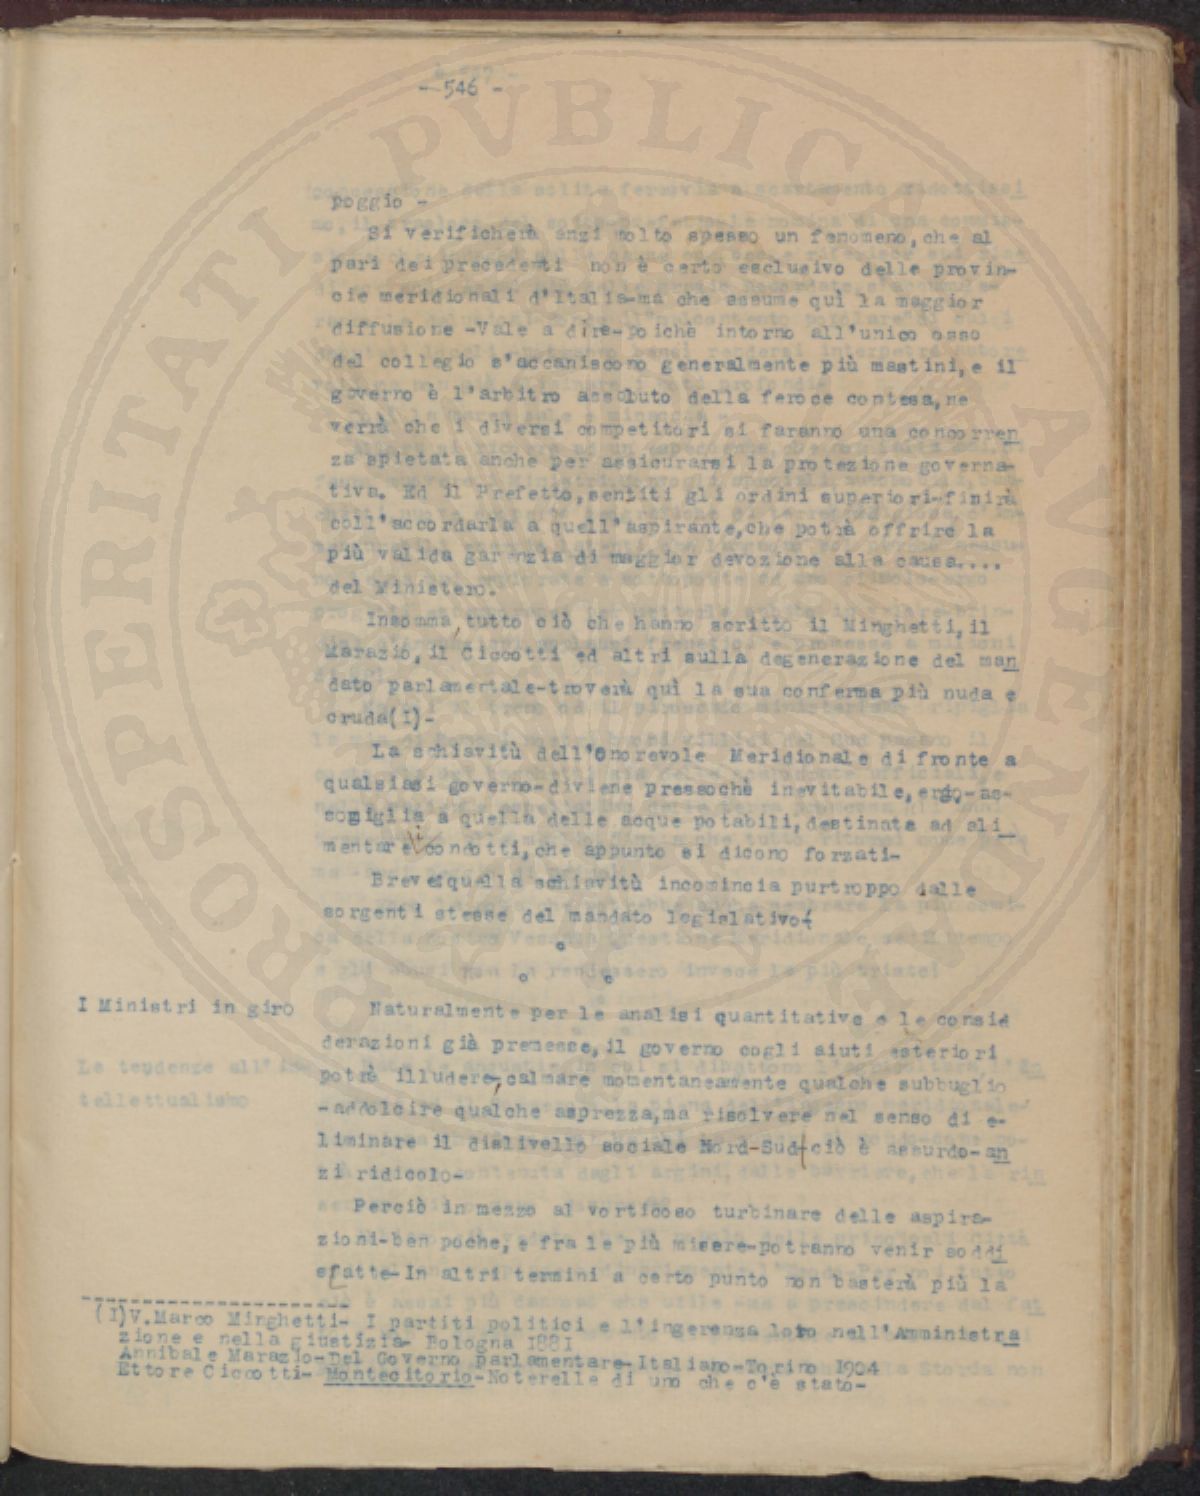 - 546 -
poggio -
Si verificherà anzi molto spesso un fenomeno, che al
pari dei precedenti non è certo esclusivo delle provin-
cie meridionali d'Italia-ma che assume quì la maggior
diffusione -Vale a dire-poichè intorno all'unico osso
del collegio s'accaniscono generalmente più mastini, e il
governo è l'arbitro assoluto della feroce contesa, ne
verrà che i diversi competitori si faranno una concorren
za spietata anche per assicurarsi la protezione governa-
tiva. Ed il Prefetto, sentiti gli ordini superiori-finirà
coll'accordarla a quell'aspirante, che potrà offrire la
più valida garanzia di maggior devozione alla causa....
del Ministero.
Insomma, tutto ciò che hanno scritto il Minghetti, il
Marazio, il Ciccotti ed altri sulla degenerazione del man
dato parlamentale-troverà quì la sua conferma più nuda e
cruda(I)-
La schiavitù dell'Onorevole Meridionale di fronte a
qualsiasi governo-diviene pressochè inevitabile, ergo-as-
somiglia a quella delle acque potabili, destinate ad ali
mentare i condotti, che appunto si dicono forzati-
Breve: quella schiavitù incomincia purtroppo dalle
sorgenti stesse del mandato legislativo!
°
° °
I Ministri in giro
Naturalmente per le analisi quantitative e le consid
derazioni già premesse, il governo cogli aiuti esteriori
potrà illudere, calmare momentaneamente qualche subbuglio
-addolcire qualche asprezza, ma risolvere nel senso di e-
liminare il dislivello sociale Nord-Sud-ciò è assurdo-an
zi ridicolo-
Perciò in mezzo al vorticoso turbinare delle aspira-
zioni-ben poche, e fra le più misere-potranno venir soddi
sfatte-In altri termini a certo punto non basterà più la
(I)V. Marco Minghetti- I partiti politici e l'ingerenza loro nell'Amministra
zione e nella giustizia- Bologna 1881
Annibale Marazio-Del Governo parlamentare-Italiano-Torino 1904
Ettore Ciccotti- Montecitorio-Noterelle di uno che c'è stato-
PROSPERITATI PVBLICAE AVGENDAE